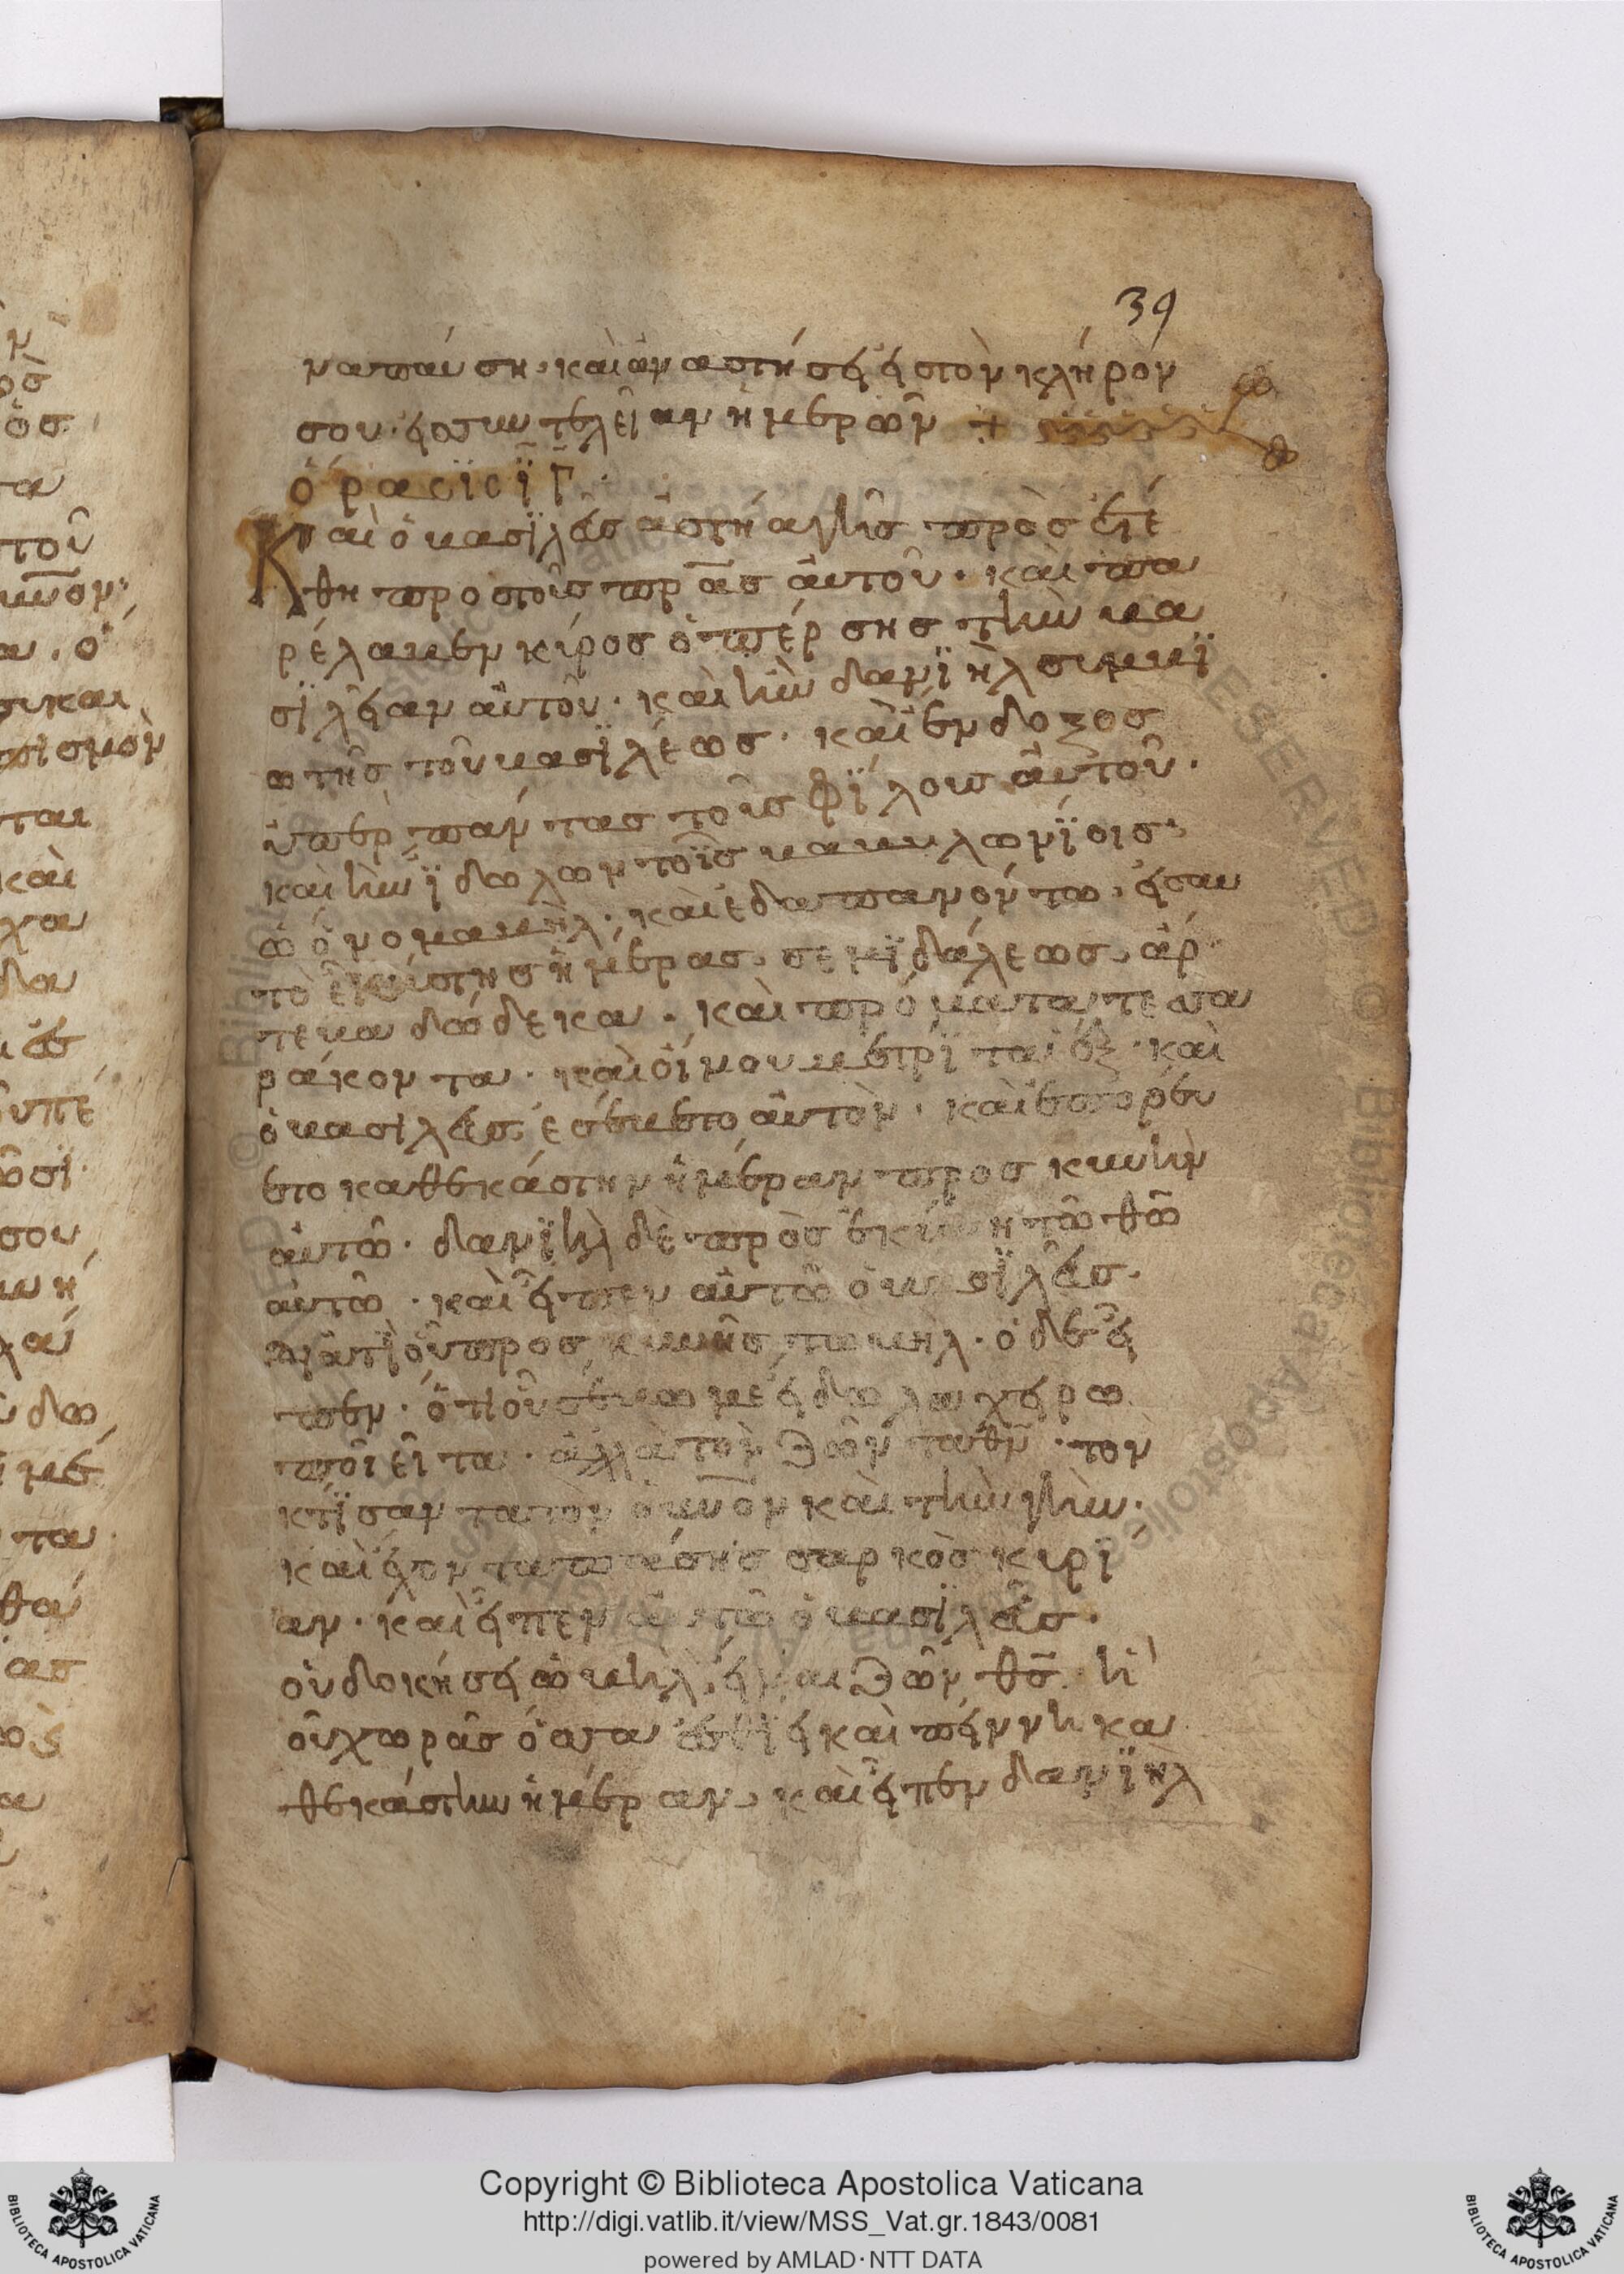 39
ναπαύση· καὶ ἀναστήσῃ εἰς τὸν κλήρόν
σου· εἰς συντελεῖαν ἡμερῶν +
ὅρασϊσ ϊ̅γ̅·
Καὶ ὁ βασϊλεὺς ἀστηάγης προσετέ
θη προς τοὺς πρ̅ας αὐτοῦ· καὶ πα
ρέλαβεν κύρος ὁ πέρσης τὴν βα
σϊλείαν αὐτοῦ· καὶ ἦν δανϊὴλ συμβϊ
ωτὴς τοῦ βασϊλέως· καὶ ἔνδοξος
ὑπὲρ πάντας τοὺς φϊλους αὐτοῦ·
καὶ ἦν ϊδωλων τοῖς βαβυλωνϊοις·
ὧ ὄνομα βὴλ· καὶ ἐδαπανόντω· εἰς αυ
τὸ ἑκάστης ἡμέρας· σεμϊδάλεως· ἀρ
τεβα δώδεκα· καὶ πρόματα τεσσα
ράκοντα· καὶ οἴνου μετρϊται ἓξ· καὶ
ὁ βασιλεὺς ἐσέβετο αὐτὸν· καὶ ἐπορεύ
ετο καθεκάστην ἡμέραν προσκυνὴν
αὐτῶ· δανϊὴλ δὲ προσεκύνη τῶ θ̅ῶ
αὐτῶ· καὶ εἶπεν αὐτῶ ὁ βασϊλεύς·
διατὶ οὐ προσκυνῆς τῶ βὴλ· ὁ δὲ εἶ
πεν· ὅτι οὐ σέβωμε εἴδωλα χειρω
ποῖειτα· ἀλλὰ τὸν ζῶντα θ̅ν̅· τὸν
κτϊσαντα τὸν οὐν̅ον καὶ τὴν γὴν·
καὶ ἔχοντα πάσης σαρκὸς κυρϊ
αν· καὶ εἶπεν αὐτῶ ὁ βασϊλεύς·
οὐ δοκήσει ὡ βὴλ εἶναι ζῶν θ̅ς̅ ἢ
οὐχ ὡρᾶς ὅσα ἐσθϊει καὶ πείννη κα
θεκάστην ἡμέραν· καὶ εἶπεν δανϊηλ
Copyright © Biblioteca Apostolica Vaticana
http://digi.vatlib.it/view/MSS_Vat.gr.1843/0081
powered by AMLAD · NTT DATA
BIBLIOTECA APOSTOLICA VATICANA
BIBLIOTECA APOSTOLICA VATICANA